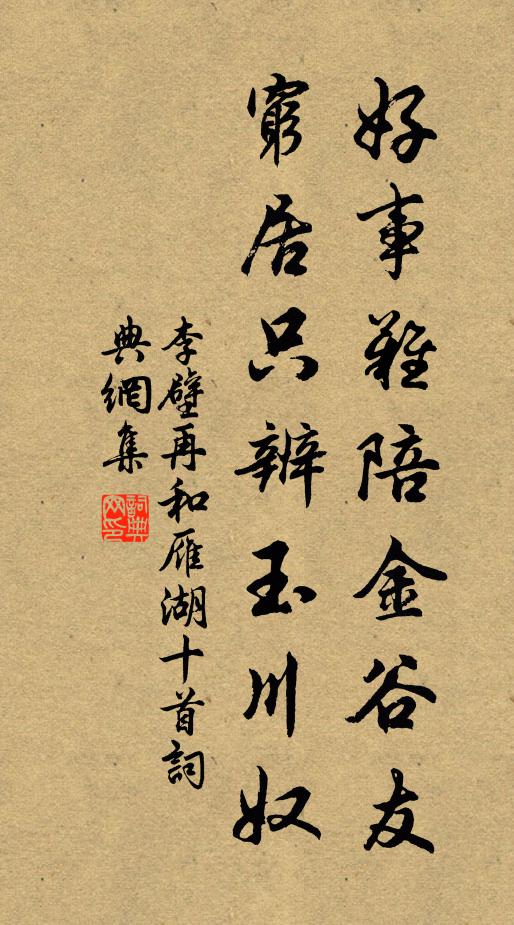 好事難陪金谷友
窮居只辦玉川奴
李壁再和雁湖十首詞
典網集
詞典
网印